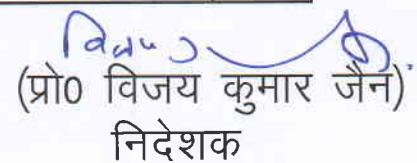 (प्रो0 विजय कुमार जैन)
निदेशक